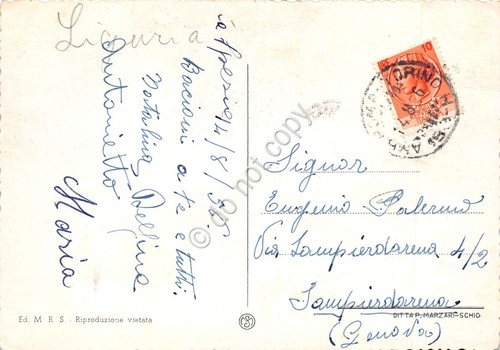 Liguria
la Spezia 4/8/56
Bacioni a te e tutti.
Natalina Delfina
Antonietta
Maria
10
TORINO
Signor
Eugenio Palermo
Via Sampierdarena 4/2
Sampierdarena
(Genova)
Ed. M. R. S. - Riproduzione vietata
DITTA P. MARZARI-SCHIO
do not copy